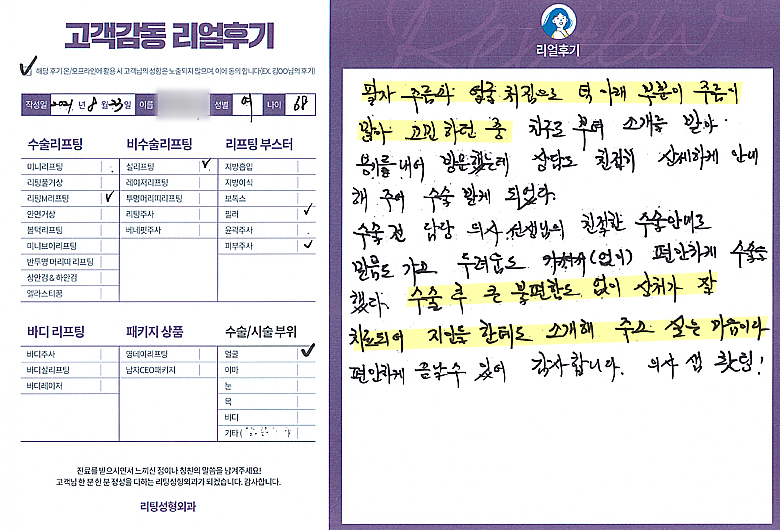 고객감동 리얼후기
해당 후기 온/오프라인에 활용 시 고객님의 성함은 노출되지 않으며, 이에 동의 합니다(EX. 김OO님의 후기)
작성일 2021년 8월 23일 이름 성별 여 나이 68
수술리프팅
미니리프팅
리팅풀거상
리팅M리프팅
안면거상
붐턱리프팅
미니브이리프팅
반투명 머리띠 리프팅
상안검 & 하안검
엘라스티꿈
비수술리프팅
실리프팅
레이저리프팅
투명머리띠리프팅
리팅주사
베네핏주사
리프팅 부스터
지방흡입
지방이식
보톡스
필러
윤곽주사
피부주사
바디 리프팅
바디주사
바디실리프팅
바디레이저
패키지 상품
영데이리프팅
남자CEO패키지
수술/시술 부위
얼굴
이마
눈
목
바디
기타(
진료를 받으시면서 느끼신 점이나 칭찬의 말씀을 남겨주세요!
고객님 한 분 한 분 정성을 다하는 리팅성형외과가 되겠습니다. 감사합니다.
리팅성형외과
Review
리얼후기
팔자 주름과 얼굴 처짐으로 턱 아래 부분이 주름이
많아 고민 하던 중 치료 부터 소개를 받아
용기를 내어 방문했는데 상담도 친절히 상세하게 안내
해 주어 수술 받게 되었다.
수술 전 담당 의사 선생님의 친절한 수술안내로
믿음도 가고 두려움도 (없이) 편안하게 수술을
했다. 수술 후 큰 불편함도 없이 상처가 잘
치료되어 지인들 한테도 소개해 주고 싶은 마음이다
편안하게 끝낼수 있어 감사합니다. 의사 샘 홧팅!